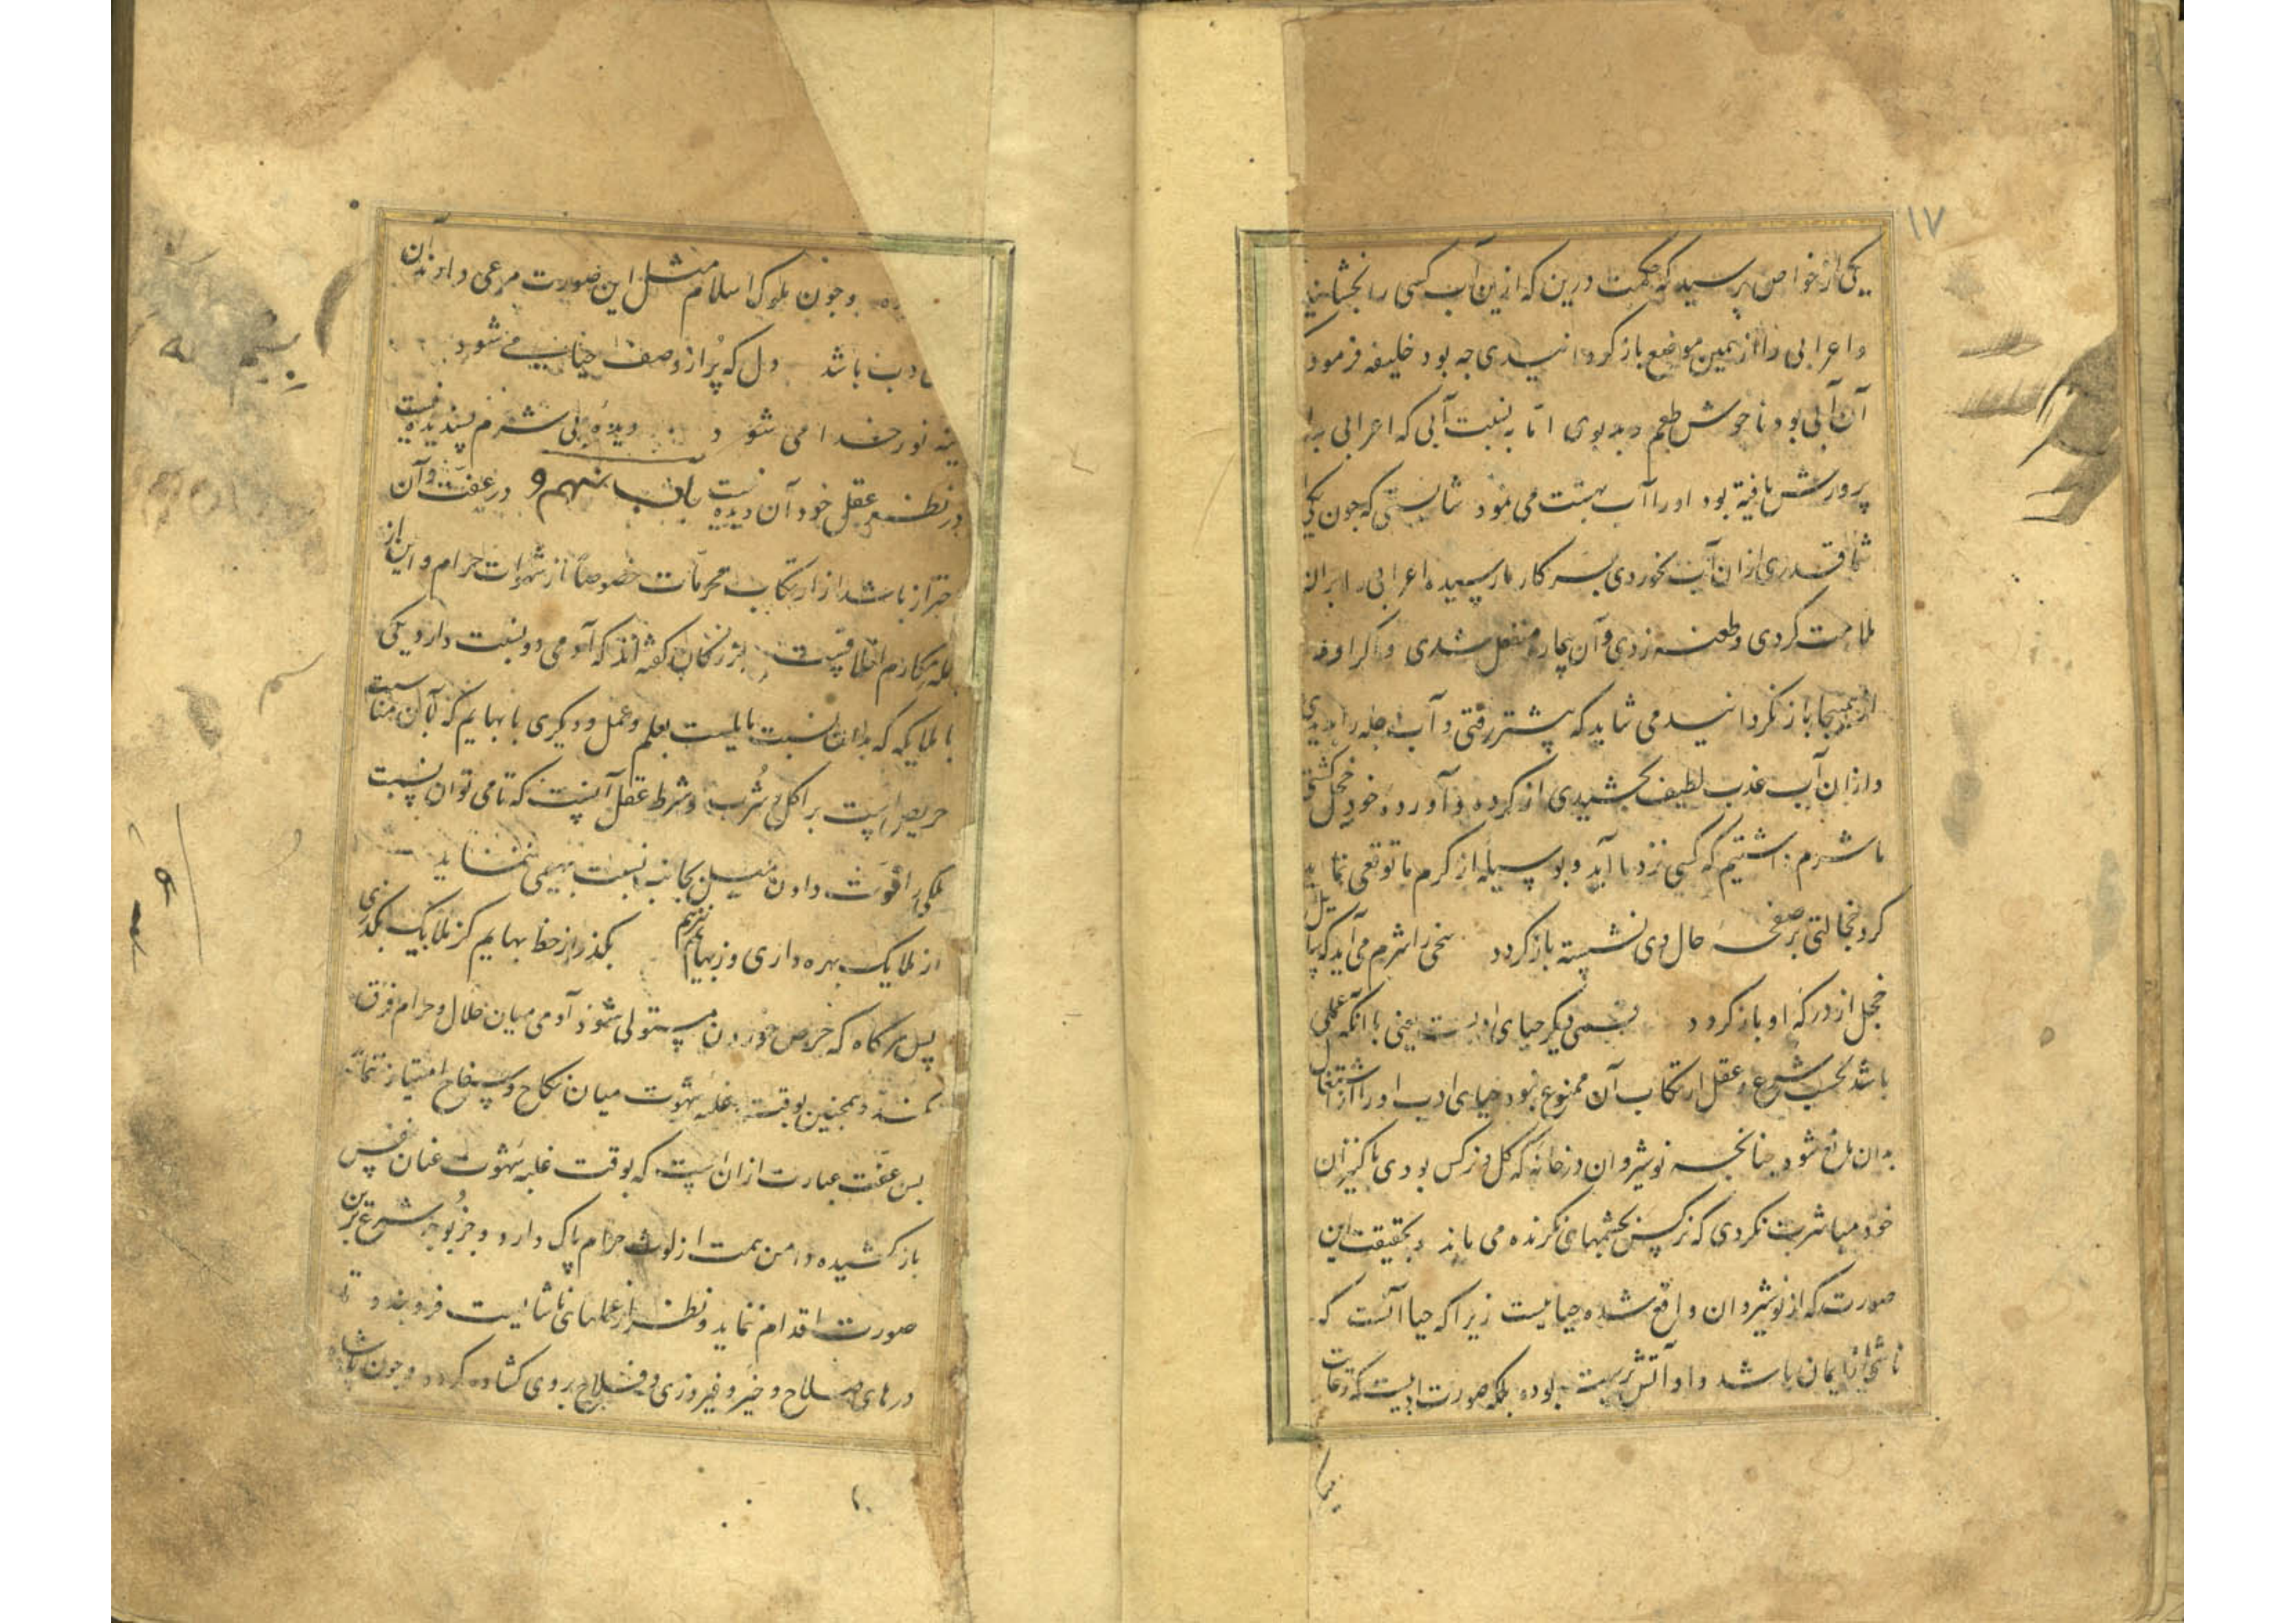 ۱۷
یکی از خواص پرسید که حکمت درین که ازین آب کسی را نچشانید
و اعرابی را از همین موضع باز کردانیدی جه بود خلیفه فرمود که
آن آبی بود ناخوش طعم و بدبوی اما به نسبت آبی که اعرابی بدان
پرورش یافته بود او را آب بهشت می نمود شایستی که جون یکی
شما قدری ازان آب بخوردی بسر کار نارسیده اعرابی را بران
ملامت کردی و طعنه زدی و آن بیچاره منفعل شدی و اکر او را
ازینجا باز نکردانیدمی شاید که پیشتر رفتی و آب دجله را بدیدی
و ازان آب عذب لطیف بچشیدی از کرده و آورده خود خجل کشتی
ما شرم داشتیم که کسی نزد ما آید و بوسیله از کرم ما توقعی نماید
کرد خجالتی بر صفحه حال وی نشسته باز کردد سخی را شرم می آید که سایل
خجل از درکه او باز کردد قسمی دیکر حیای ادبست یعنی با آنکه عملی
باشد بحسب شرع و عقل ارتکاب آن ممنوع نبود حیای ادب او را از اشتغال
بدان مانع شود جنانجه نوشیروان در خانه که کل نرکس بودی با کنیزان
خود مباشرت نکردی که نرکس بچشمهای نکرنده می ماند و بحقیقت این
صورت که از نوشیروان واقع شده حیا نیست زیرا که حیا آنست که
ناشی از ایمان باشد و او آتش پرست بوده بلکه صورت ادبیست که رعایت
وجون ملوک اسلام مثل این صورت مرعی دارند آن
ادب باشد دل که پر از وصف حیا می شود
نور خدا می شود دیده بی شرم پسندیده نیست
در نظر عقل خود آن دیده نیست باب نهم در عفت و آن
احتراز باشد از ارتکاب محرمات خصوصا از شهوات حرام و این از
جمله مکارم اخلاقست بزرکان کفته اند که آدمی دو نسبت دارد یکی
با ملایکه که بدان نسبت مایلست بعلم و عمل و دیکری با بهایم که بآن مناسبت
حریص است بر اکل و شرب و شرط عقل آنست که تا می توان نسبت
ملکی را قوت دادن میل بجانب نسبت بهیمی ننماید
از ملایک بهره داری وز بهایم نیز هم بکذر از حظ بهایم کز ملایک بکذری
پس هرکاه که حرص خوردن مستولی شود آدمی میان حلال و حرام فرق
نکند و همجنین بوقت غلبه شهوت میان نکاح و سفاح امتیاز ننماید
بس عفت عبارت ازان است که بوقت غلبه شهوت عنان نفس
باز کشیده دامن همت از لوث حرام پاک دارد و جز بوجه شرع برین
صورت اقدام ننماید و نظر از عملهای ناشایست فروبندد تا
درهای صلاح و خیر و فیروزی و فلاح بروی کشاده کردد و جون پادشاه